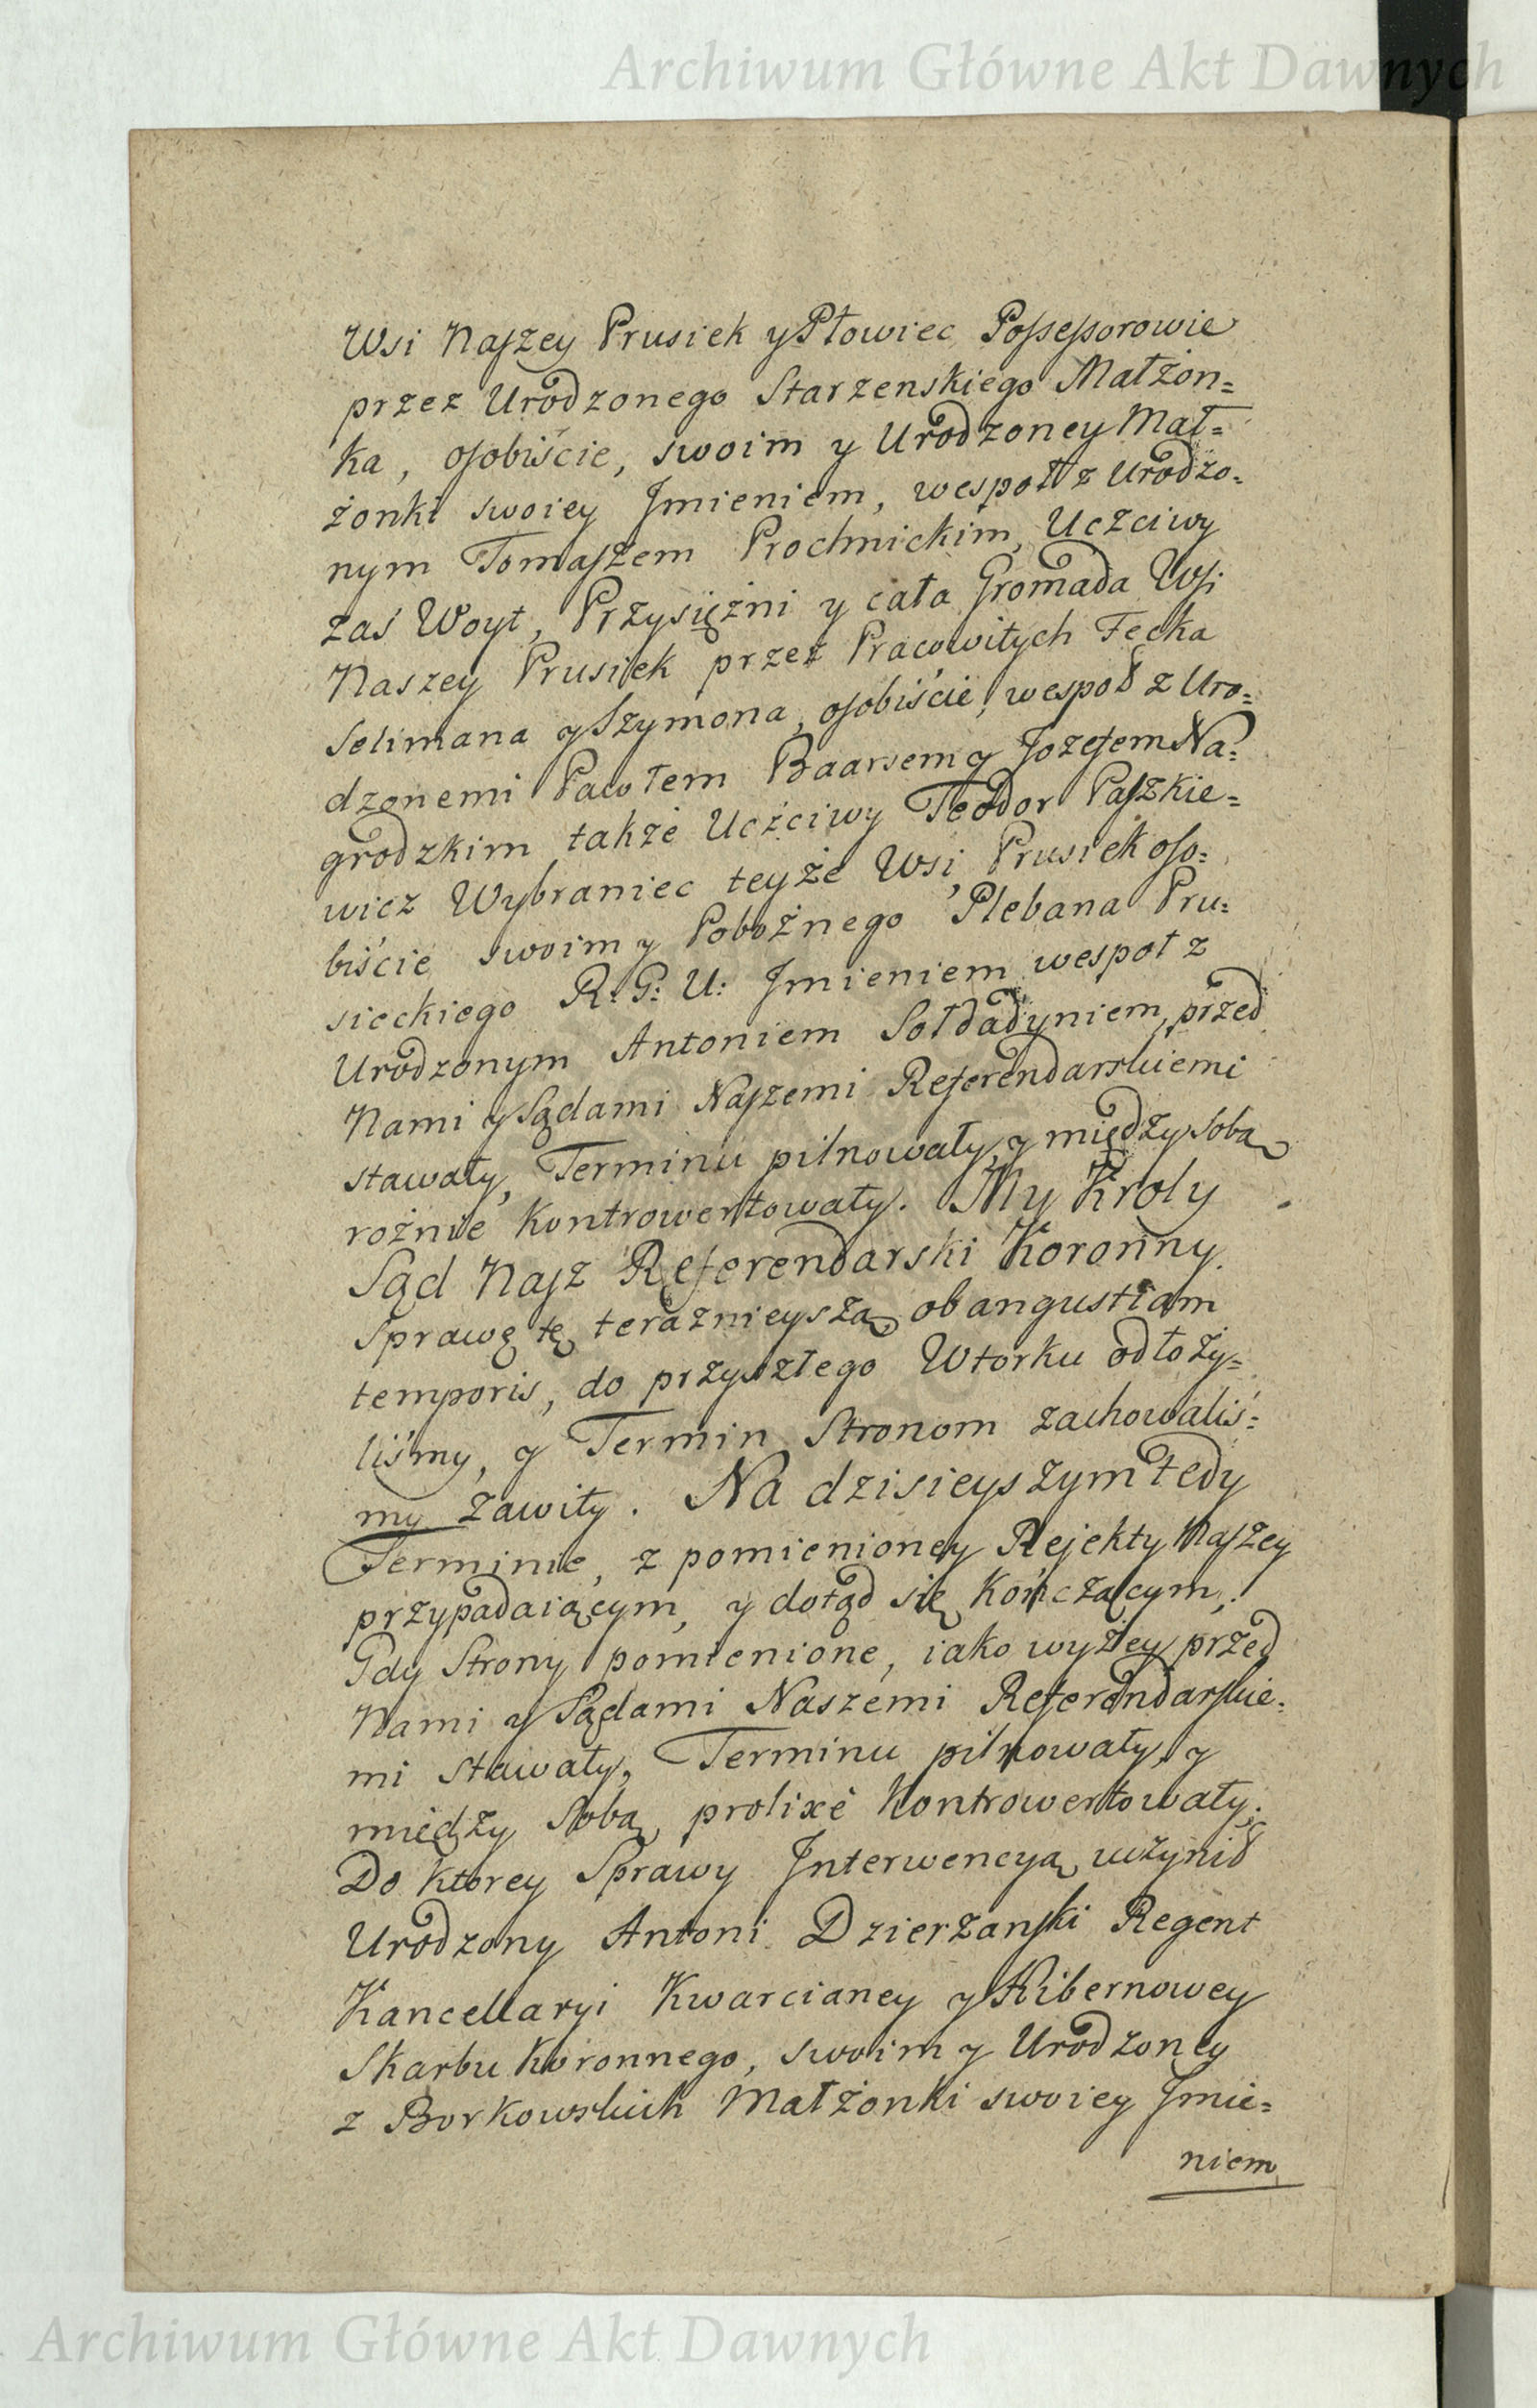 Archiwum Główne Akt Dawnych
Wsi Naszey Prusiek y Płowiec Possessorowie
przez Urodzonego Starzenskiego Małżon=
ka, osobiście, swoim y Urodzoney Mał=
żonki swoiey Jmieniem, wespoł z Urodzo=
nym Tomaszem Prochnickim, Uczciwy
zaś Woyt, Przysiężni y cała Gromada Wsi
Naszey Prusiek przez Pracowitych Fecka
Selimana y Szymona, osobiście, wespoł z Uro=
dzonemi Pawłem Baarsem y Jozefem Na=
grodzkim także Uczciwy Teodor Paszkie=
wicz Wybraniec teyże Wsi Prusiek oso=
biście swoim y Pobożnego Plebana Pru=
sieckiego R: G: U: Jmieniem wespoł z
Urodzonym Antoniem Sołdadyniem, przed
Nami y Sądami Naszemi Referendarskiemi
stawały, Terminu pilnowały, y między sobą
rożnie kontrowertowały. My Kroly
Sąd Nasz Referendarski Koronny.
Sprawę tę teraznieyszą, ob angustiam
temporis, do przyszłego Wtorku odłoży=
liśmy, y Termin Stronom zachowaliś=
my zawity. Na dzisieyszym tedy
Terminie, z pomienioney Rejekty Naszey
przypadaiącym, y dotąd się kończącym,
Gdy Strony pomienione, iako wyżey przed
Nami y Sądami Naszemi Referendarskie=
mi stawały, Terminu pilnowały, y
między sobą prolixè kontrowertowały;
Do ktorey Sprawy Jnterwencyą uczynił
Urodzony Antoni Dzierzanski Regent
Kancellaryi Kwarcianey y Hibernowey
Skarbu Koronnego, swoim y Urodzoney
z Borkowskich Małżonki swoiey Jmie=
niem
Archiwum Główne Akt Dawnych